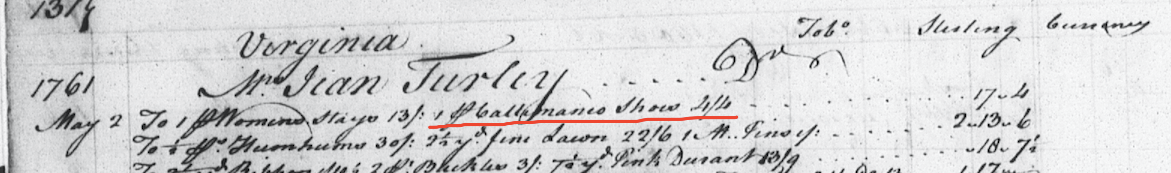 Tobo. Sterling Currency
Virginia
1761 Mrs Jean Turley Dr
May 2 To 1 pr Womens Stays 13/: 1 pr Callimanco Shoes 4/4 17 " 4
To ½ ps Humhums 30/: 2½ yd fine Lawn 22/6 1 M. Pins 1/: 2 " 13 " 6
Ribbon 2 pr Buckles 3/: 7½ yd Pink Durant 13/9 " 18 " 7½